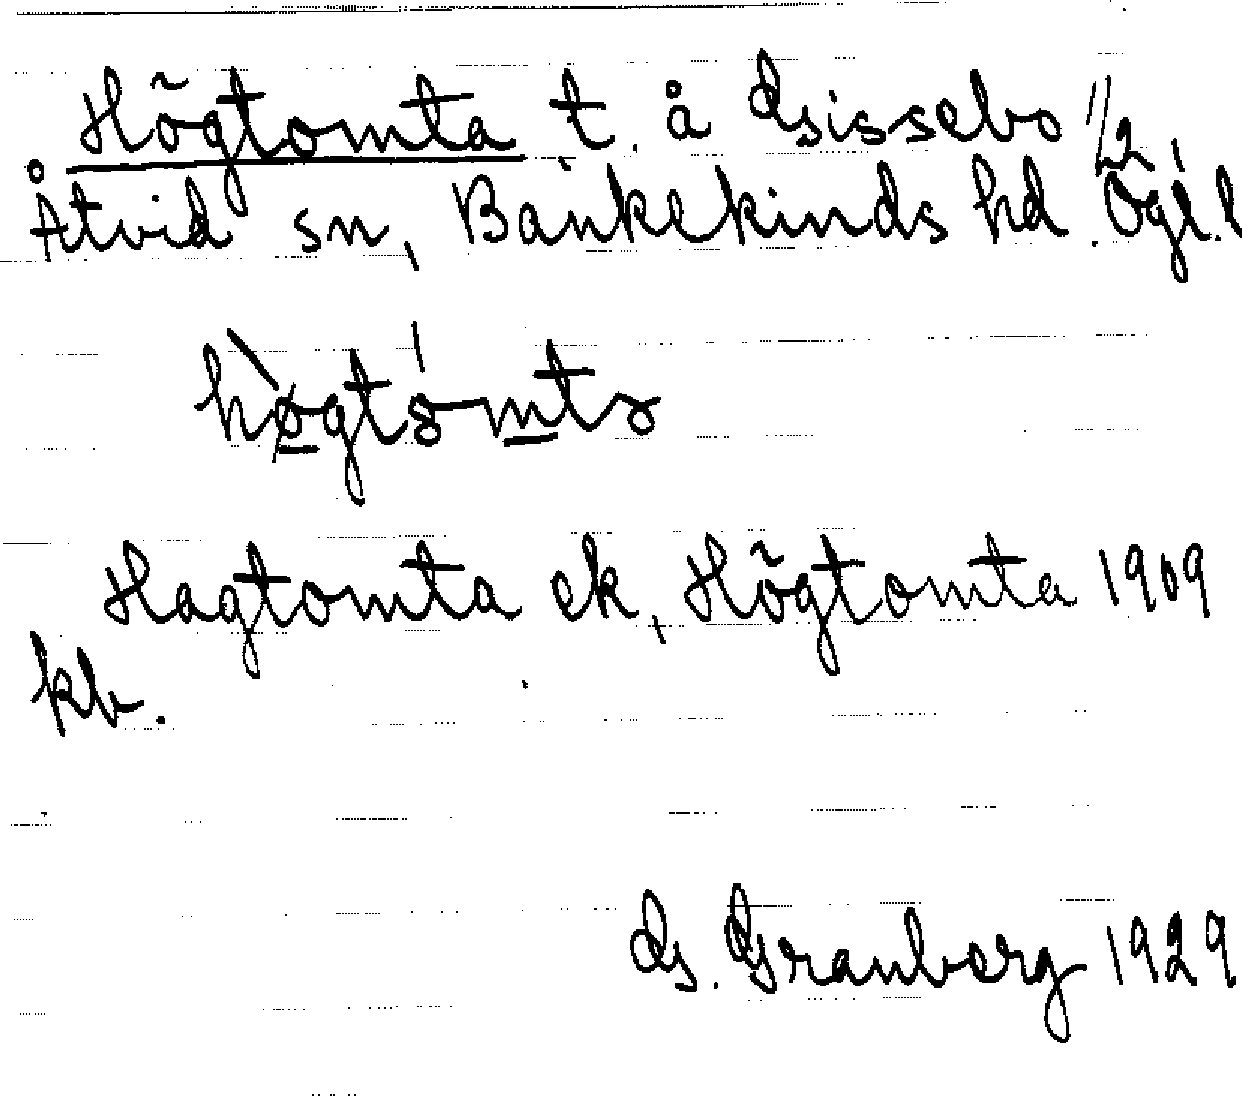 Högtomta t. å Gissebo 1/2
Åtvid sn, Bankekinds hd. Ögl. l
Hagtomta ek, Högtomta 1909
kb.
G. Granberg 1929